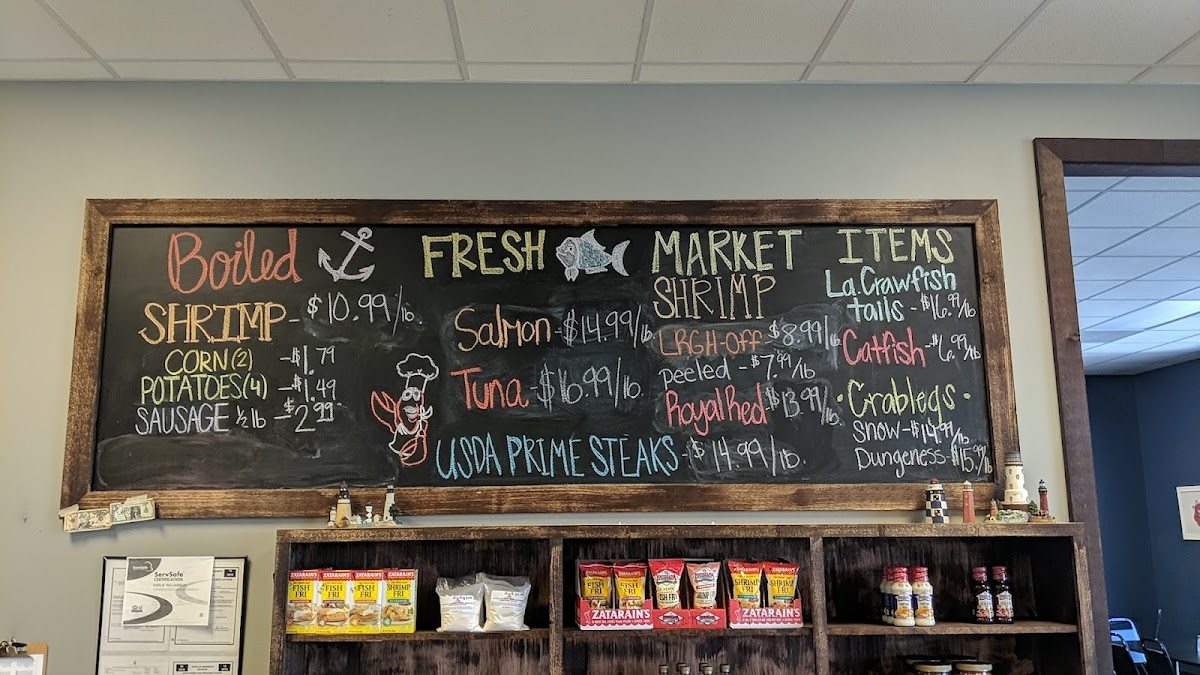 Boiled
SHRIMP - $10.99/lb.
CORN (2) - $1.79
POTATOES (4) - $1.49
SAUSAGE 1/2 lb - $2.99
FRESH MARKET ITEMS
Salmon - $14.99/lb
Tuna $16.99/lb.
USDA PRIME STEAKS - $14.99/lb.
SHRIMP
LRG H-off $8.99/lb
peeled - $7.99/lb
Royal Red $13.99/lb.
La. Crawfish
tails - $16.99/lb
Catfish - $6.99/lb
Crablegs
Snow - $14.99/lb
Dungeness - $15.99/lb
ServSafe
CERTIFICATION
ZATARAIN'S
FISH
FRI
ZATARAIN'S
FISH
FRI
ZATARAIN'S
FISH
FRI
ZATARAIN'S
SHRIMP
FRI
FISH
FRI
FISH
FRI
SHRIMP
FRI
SHRIMP
FRI
ZATARAIN'S
ZATARAIN'S